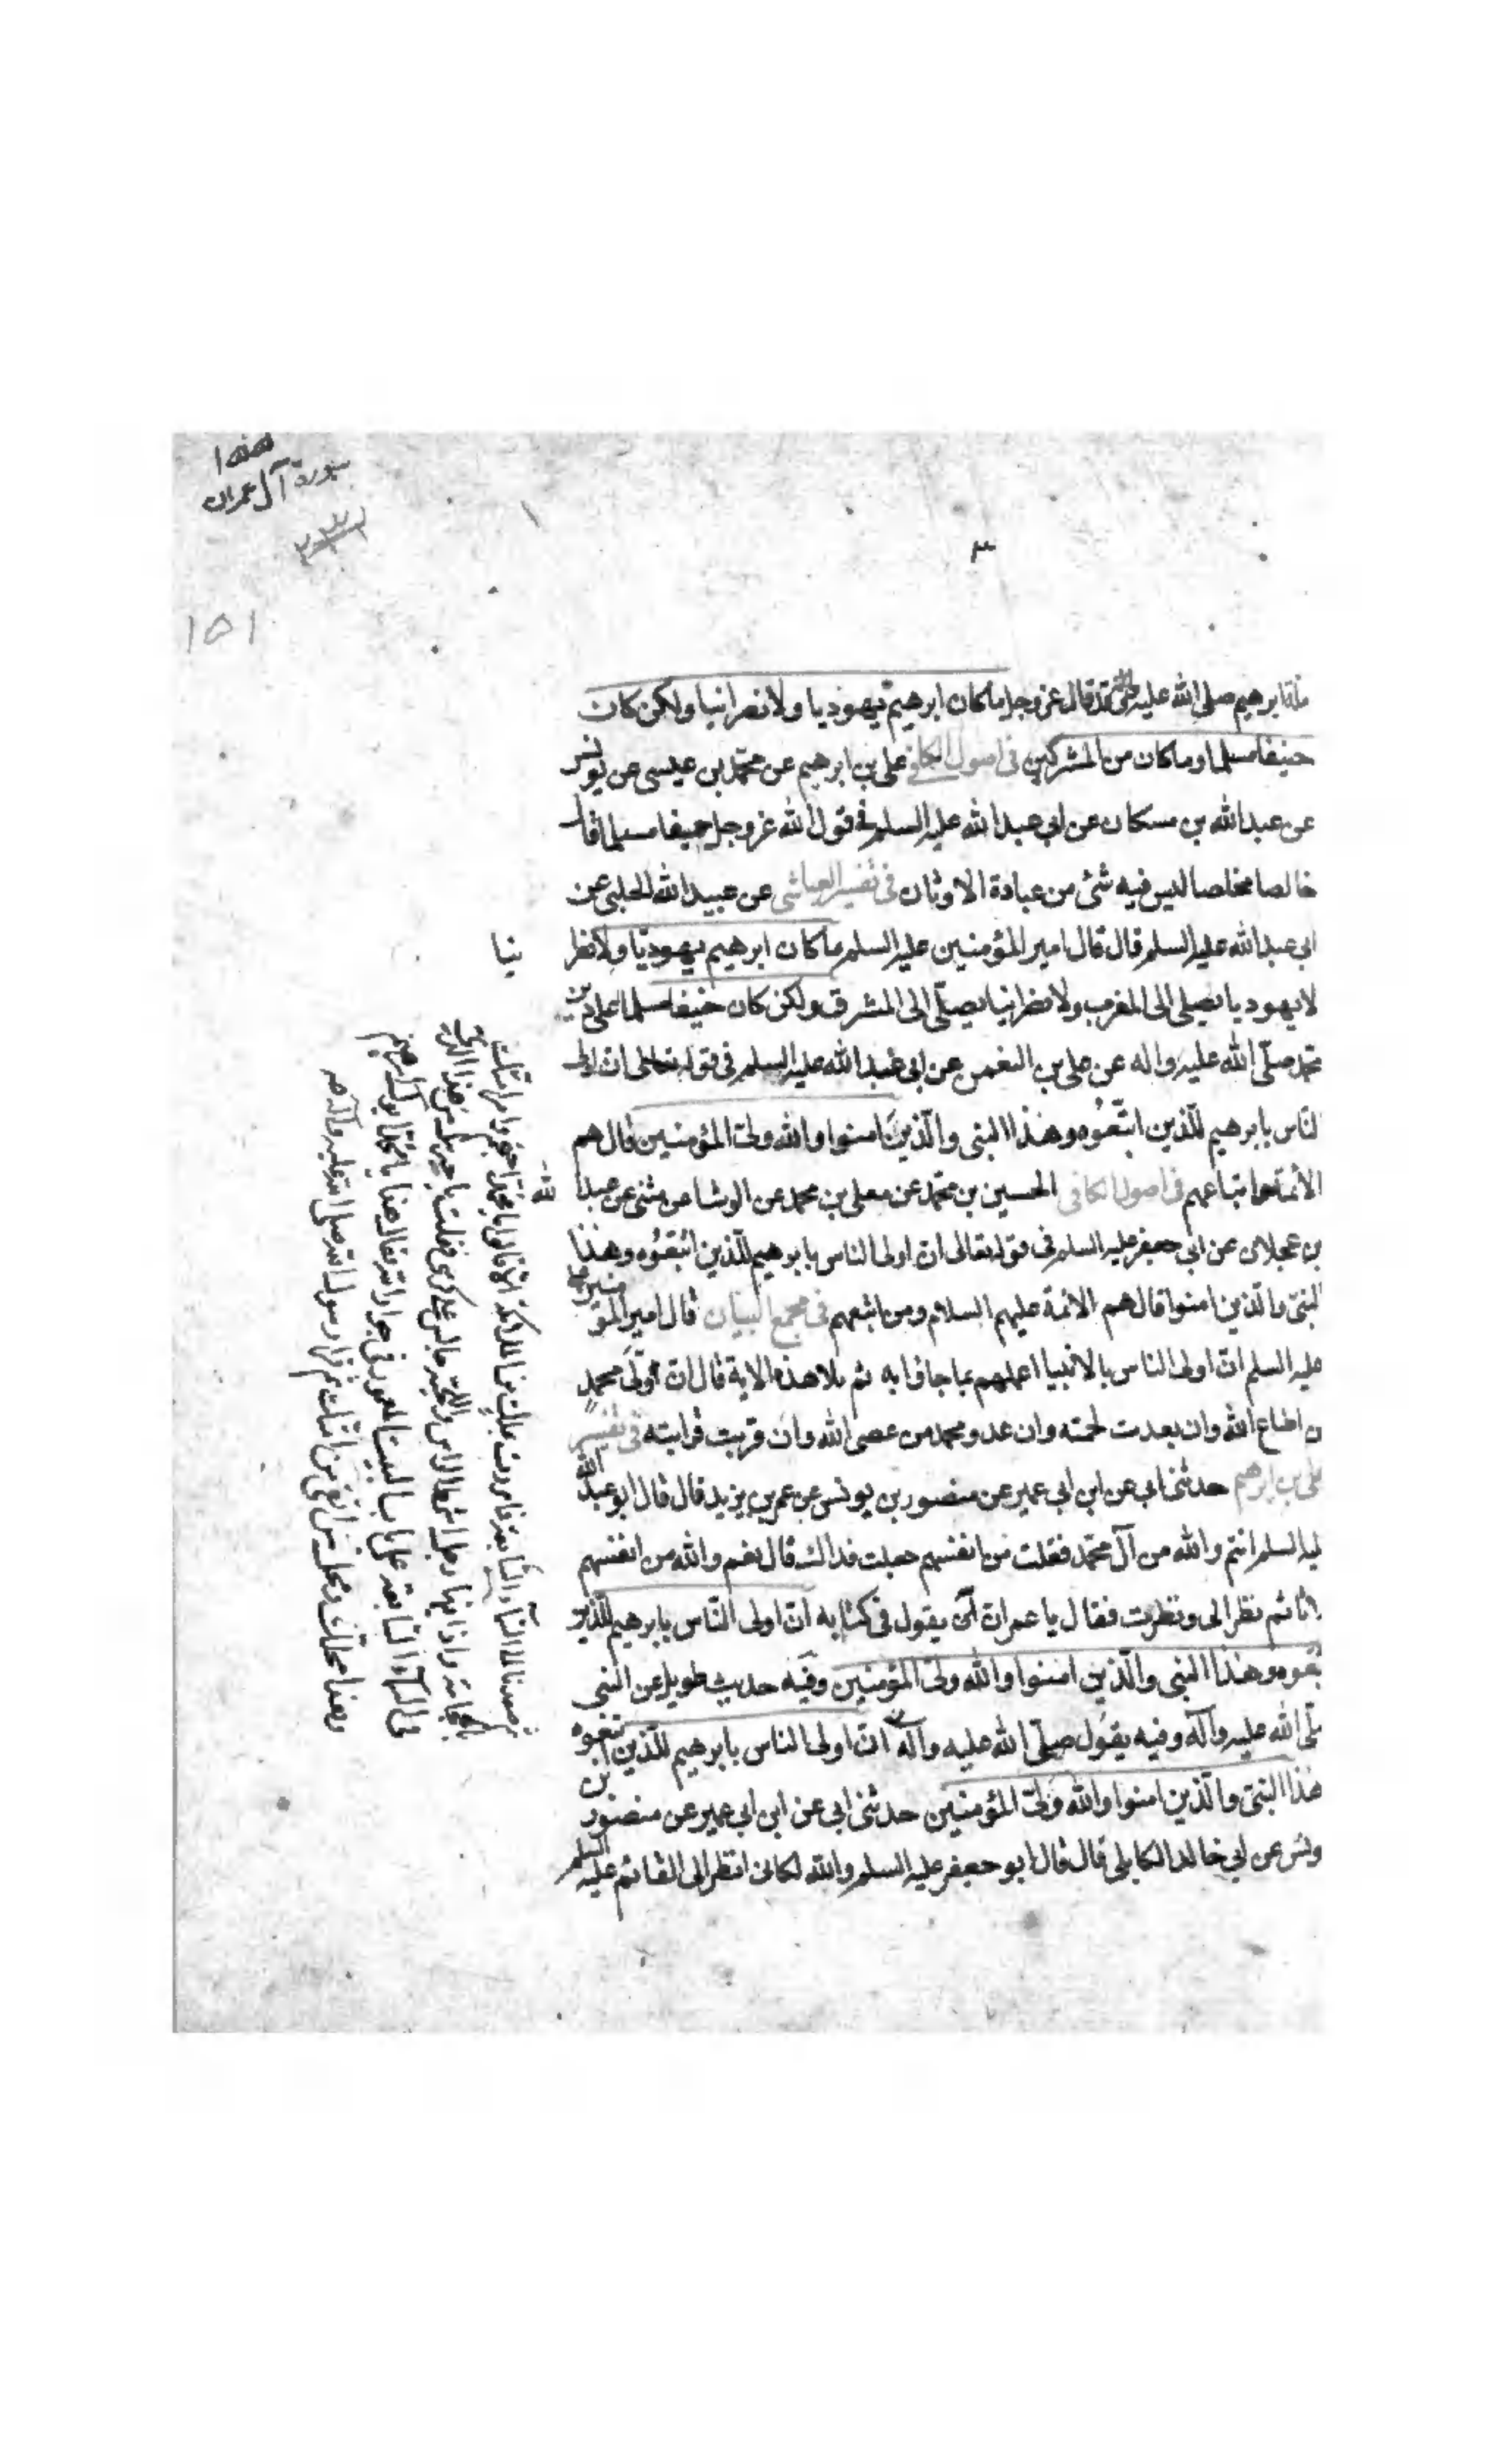 هنها
سورة آل عمران
٣
١٥١
ملة ابرهيم صلى الله عليه قال عز وجل ما كان ابرهيم يهوديا ولا نصرانيا ولكن كان
حنيفا مسلما وما كان من المشركين في اصول الكافي علي بن ابرهيم عن محمد بن عيسى عن يونس
عن عبد الله بن مسكان عن ابي عبد الله عليه السلم في قول الله عز وجل حنيفا مسلما قال
خالصا مخلصا ليس فيه شئ من عبادة الاوثان في تفسير العياشي عن عبيد الله الحلبي عن
ابي عبد الله عليه السلم قال قال امير المؤمنين عليه السلم ما كان ابرهيم يهوديا ولا نصرا
نيا
لا يهوديا يصلي الى المغرب ولا نصرانيا يصلي الى المشرق ولكن كان حنيفا مسلما على دين
محمد صلى الله عليه واله عن علي بن النعمن عن ابي عبد الله عليه السلم في قوله تعالى ان اولى
الناس بابرهيم للذين اتبعوه وهذا النبي والذين امنوا والله ولي المؤمنين قال هم
الائمة واتباعهم في اصول الكافي الحسين بن محمد عن معلى بن محمد عن الوشا عن مثنى عن عبد الله
بن عجلان عن ابي جعفر عليه السلم في قوله تعالى ان اولى الناس بابرهيم للذين اتبعوه وهذا
النبي والذين امنوا قال هم الائمة عليهم السلام ومن اتبعهم في مجمع البيان قال امير المؤمنين
عليه السلم ان اولى الناس بالانبيا اعملهم بما جاؤا به ثم تلا هذه الاية قال ان ولي محمد
من اطاع الله وان بعدت لحمته وان عدو محمد من عصى الله وان قربت قرابته في تفسير
علي بن ابرهيم حدثني ابي عن ابن ابي عمير عن منصور بن يونس عن عمر بن يزيد قال قال ابو عبد الله
عليه السلم انتم والله من آل محمد فقلت من انفسهم جعلت فداك قال نعم والله من انفسهم
ثلاثا ثم نظر الى ونظرت فقال يا عمر ان الله يقول في كتابه ان اولى الناس بابرهيم للذين
اتبعوه وهذا النبي والذين امنوا والله ولي المؤمنين وفيه حديث طويل عن النبي
صلى الله عليه وآله وفيه يقول صلى الله عليه وآله ان اولى الناس بابرهيم للذين اتبعوه
هذا النبي والذين امنوا والله ولي المؤمنين حدثني ابي عن ابن ابي عمير عن منصور بن
يونس عن ابي خالد الكابلي قال قال ابو جعفر عليه السلم والله لكاني انظر الى القائم عليه السلم
ثم صعدنا الى السماء السابعة فما مررت بملك من الملائكة الا قالوا يا محمد احتجم وامر امتك
بالحجامة واذا فيها رجل اشمط الراس واللحية جالس على كرسي فقلت يا جبرئيل من هذا الذي
في السماء السابعة على باب البيت المعمور في جوار الله فقال هذا يا محمد ابوك ابرهيم
وهذا محلك ومحل من اتقى من امتك ثم قرا رسول الله صلى الله عليه وآله